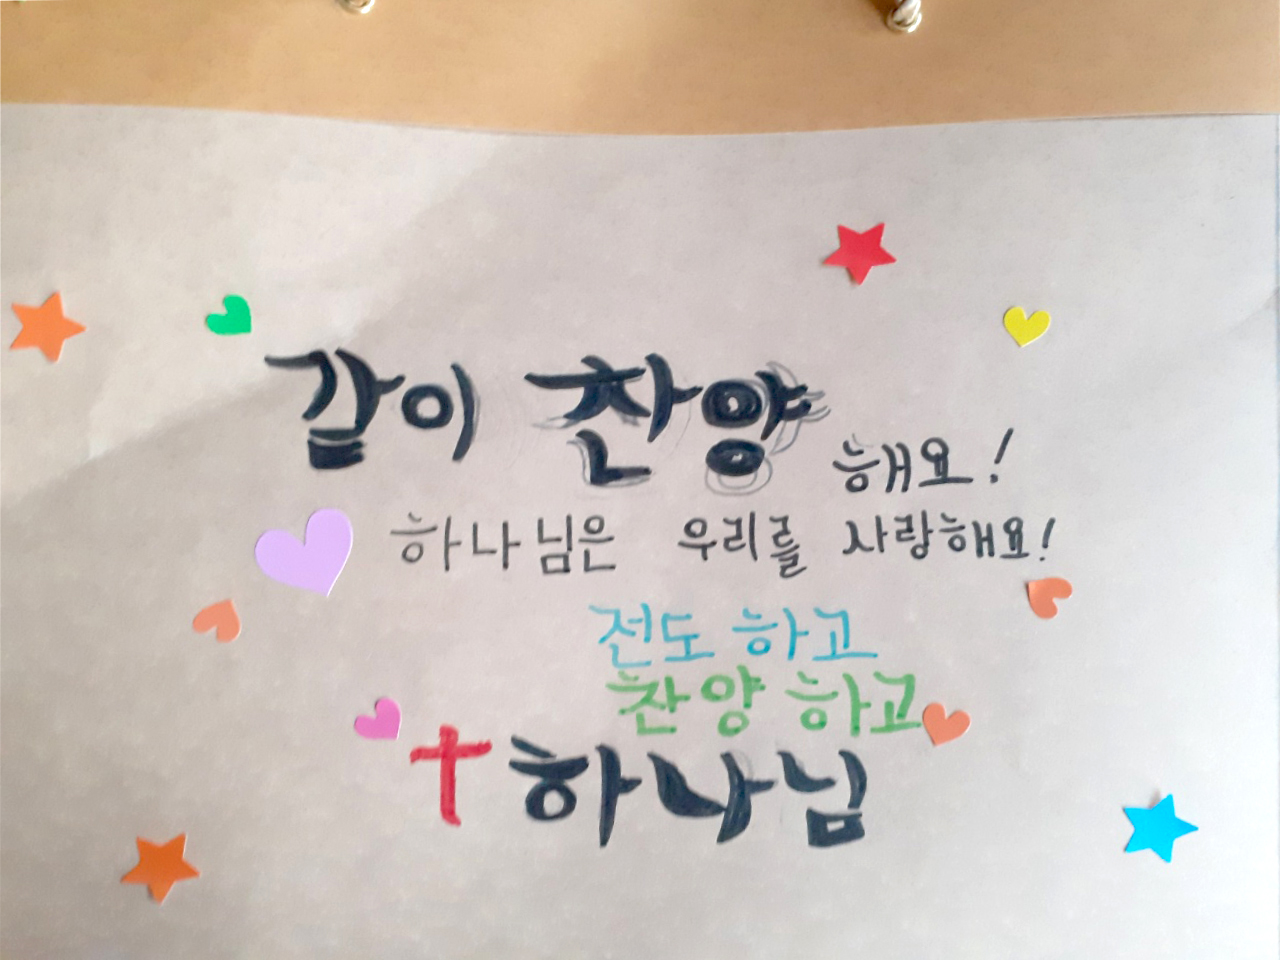 같이 찬양 해요!
하나님은 우리를 사랑해요!
전도 하고
찬양 하고
하나님